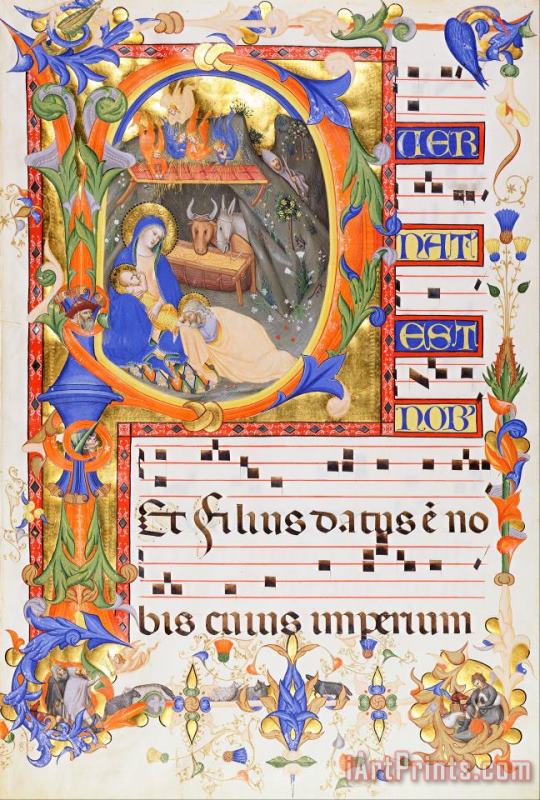 P
UER
NATI
EST
NOB
Et Filius datus ē no
bis cuius imperium
iArtPrints.com